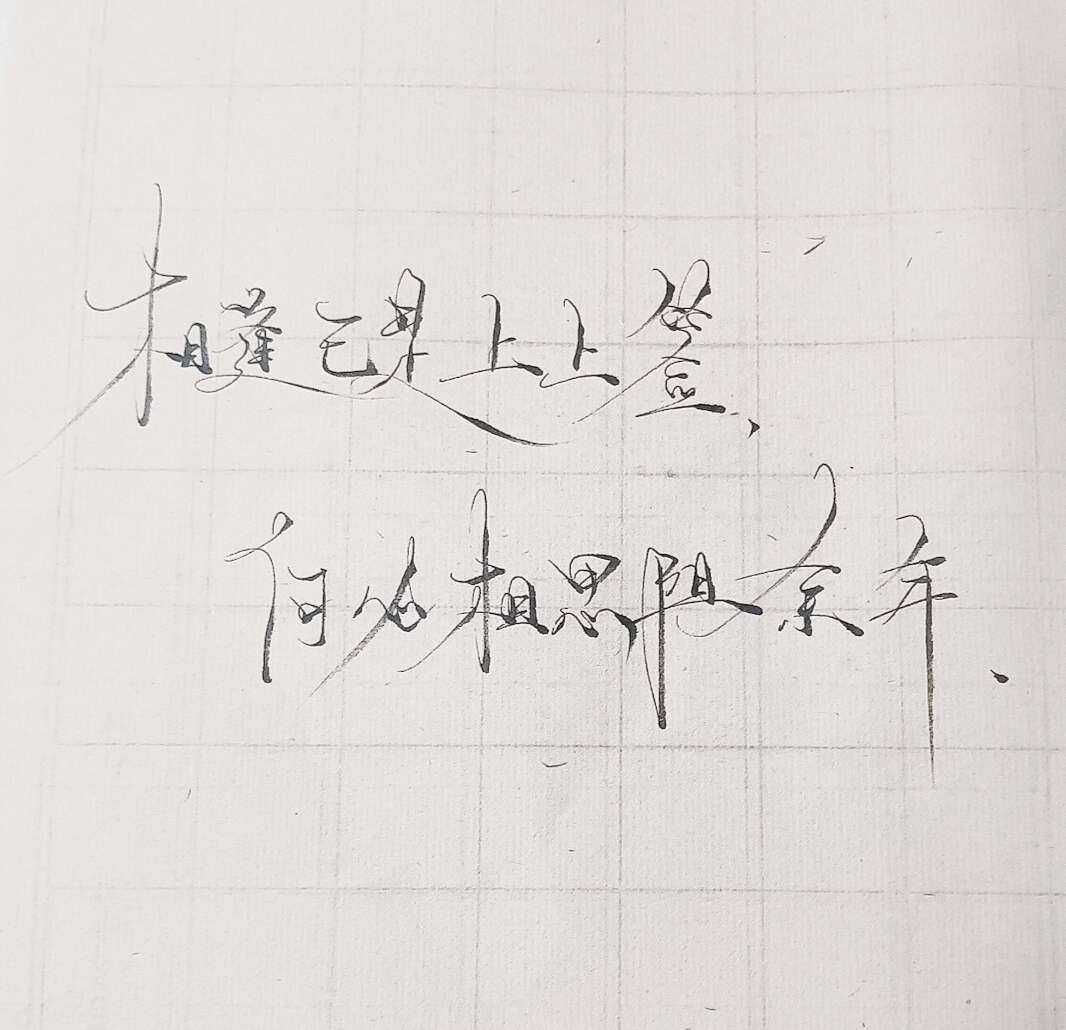 相逢已是上上签、
何必相思阻余年、